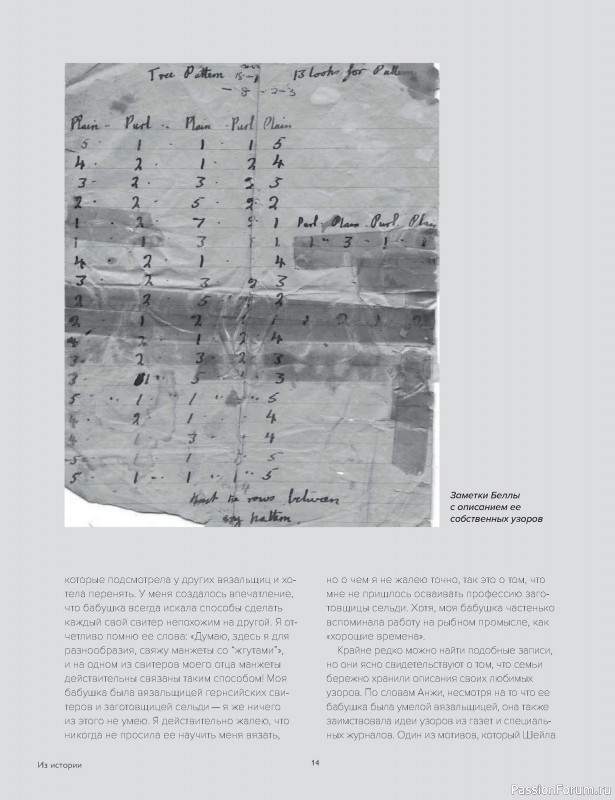 Tree Pattern
13 Looks for Pattern
- 8 - 2-3
Plain - Purl - Plain - Purl Plain
5 1 1 1 5
4 2 1 2 4
3 2 3 2 3
2 2 5 2 2
1 2 7 2 1
Purl - Plain - Purl. Plain
1 1 3 1 1
1 - 3 - 1 -
4 2 1 4
3 2 3 2 3
2 2 5 2
2 1 2 1
2 1 2 4
3 2 3 2 3
3 1 5 3
5 1 1 5
4 2 1 4
4 1 3 4
5 1 1 5
5 1 1 1 5
rows between
any pattern.
Заметки Беллы
с описанием ее
собственных узоров
которые подсмотрела у других вязальщиц и хо-
тела перенять. У меня создалось впечатление,
что бабушка всегда искала способы сделать
каждый свой свитер непохожим на другой. Я от-
четливо помню ее слова: «Думаю, здесь я для
разнообразия, свяжу манжеты со “жгутами”»,
и на одном из свитеров моего отца манжеты
действительны связаны таким способом! Моя
бабушка была вязальщицей гернсийских сви-
теров и заготовщицей сельди — я же ничего
из этого не умею. Я действительно жалею, что
никогда не просила ее научить меня вязать,
но о чем я не жалею точно, так это о том, что
мне не пришлось осваивать профессию заго-
товщицы сельди. Хотя, моя бабушка частенько
вспоминала работу на рыбном промысле, как
«хорошие времена».
Крайне редко можно найти подобные записи,
но они ясно свидетельствуют о том, что семьи
бережно хранили описания своих любимых
узоров. По словам Анжи, несмотря на то что ее
бабушка была умелой вязальщицей, она также
заимствовала идеи узоров из газет и специаль-
ных журналов. Один из мотивов, который Шейла
Из истории
14
PassionForum.ru